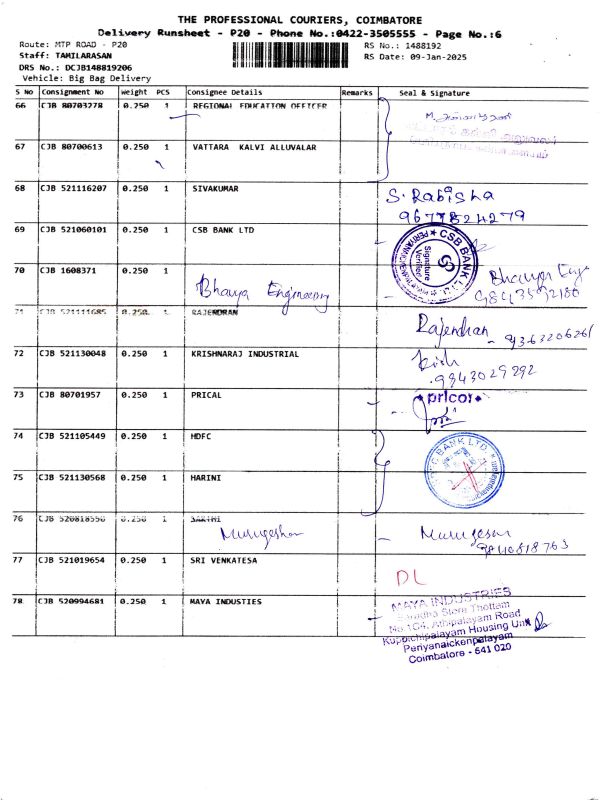 THE PROFESSIONAL COURIERS, COIMBATORE
Delivery Runsheet - P20 - Phone No.:0422-3505555 - Page No.:6
Route: MTP ROAD - P20 RS No.: 1488192
Staff: TAMILARASAN RS Date: 09-Jan-2025
DRS No.: DCJB148819206
Vehicle: Big Bag Delivery
S No Consignment No Weight PCS Consignee Details Remarks Seal & Signature
66 CJB 80703278 0.250 1 REGIONAL EDUCATION OFFICER
67 CJB 80700613 0.250 1 VATTARA KALVI ALLUVALAR
68 CJB 521116207 0.250 1 SIVAKUMAR S. Rabisha
9677824279
69 CJB 521060101 0.250 1 CSB BANK LTD CSB BANK LTD Signature Verified
70 CJB 1608371 0.250 1 Bhavya Engineering Bhavya Engg
9843592180
71 CJB 521111685 0.250 1 RAJENDRAN Rajendran - 9363206261
72 CJB 521130048 0.250 1 KRISHNARAJ INDUSTRIAL Krish
9843029292
73 CJB 80701957 0.250 1 PRICAL pricol
74 CJB 521105449 0.250 1 HDFC BANK LTD.
75 CJB 521130568 0.250 1 HARINI
76 CJB 520818550 0.250 1 SAKTHI Murugeshan Murugesan
77 CJB 521019654 0.250 1 SRI VENKATESA DL
78 CJB 520994681 0.250 1 MAYA INDUSTIES MAYA INDUSTRIES
Saradha Store Thottam
No.1G4, Athipalayam Road
Kuppichipalayam Housing Unit
Periyanaickenpalayam
Coimbatore - 641 020